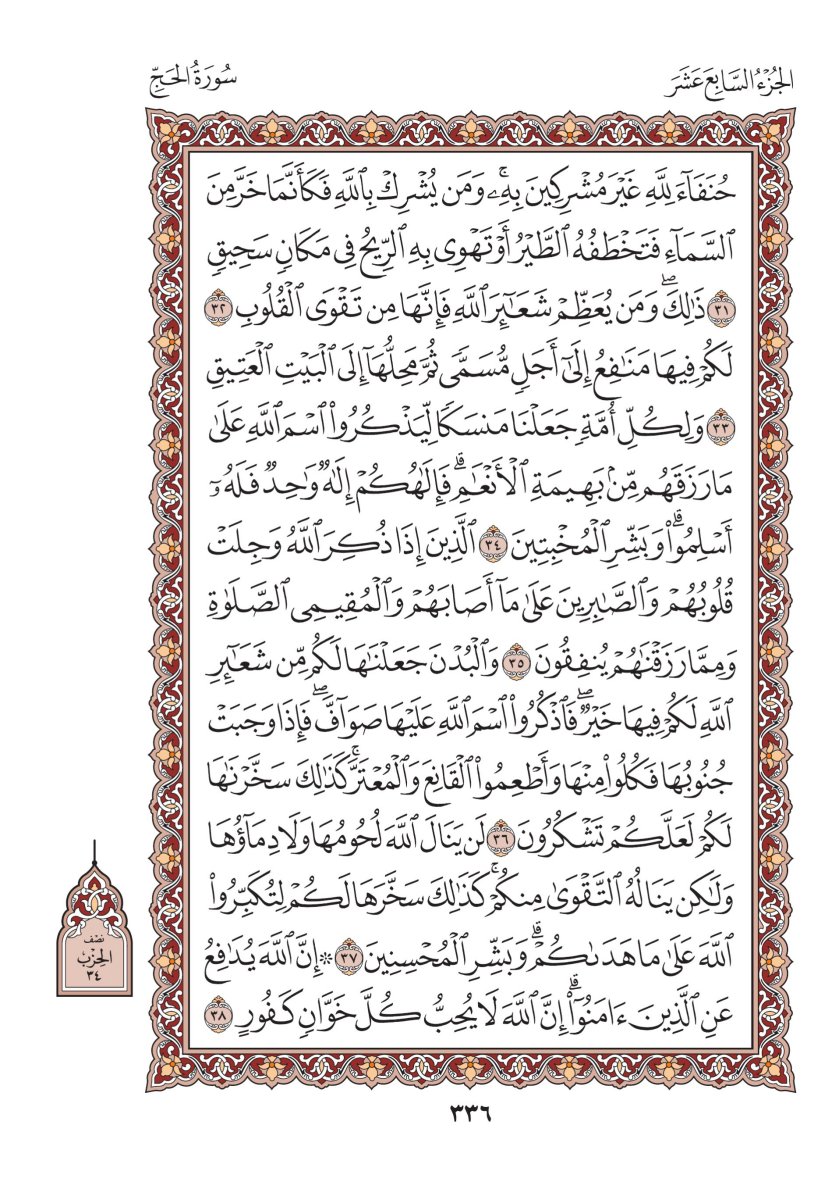 الجُزْءُ السَّابِعَ عَشَرَ
سُورَةُ الحَجِّ
حُنَفَآءَ لِلَّهِ غَيۡرَ مُشۡرِكِينَ بِهِۦۚ وَمَن يُشۡرِكۡ بِٱللَّهِ فَكَأَنَّمَا خَرَّ مِنَ
ٱلسَّمَآءِ فَتَخۡطَفُهُ ٱلطَّيۡرُ أَوۡ تَهۡوِي بِهِ ٱلرِّيحُ فِي مَكَانٖ سَحِيقٖ
٣١ ذَٰلِكَۖ وَمَن يُعَظِّمۡ شَعَٰٓئِرَ ٱللَّهِ فَإِنَّهَا مِن تَقۡوَى ٱلۡقُلُوبِ ٣٢
لَكُمۡ فِيهَا مَنَٰفِعُ إِلَىٰٓ أَجَلٖ مُّسَمّٗى ثُمَّ مَحِلُّهَآ إِلَى ٱلۡبَيۡتِ ٱلۡعَتِيقِ
٣٣ وَلِكُلِّ أُمَّةٖ جَعَلۡنَا مَنسَكٗا لِّيَذۡكُرُواْ ٱسۡمَ ٱللَّهِ عَلَىٰ
مَا رَزَقَهُم مِّنۢ بَهِيمَةِ ٱلۡأَنۡعَٰمِۗ فَإِلَٰهُكُمۡ إِلَٰهٞ وَٰحِدٞ فَلَهُۥٓ
أَسۡلِمُواْۗ وَبَشِّرِ ٱلۡمُخۡبِتِينَ ٣٤ ٱلَّذِينَ إِذَا ذُكِرَ ٱللَّهُ وَجِلَتۡ
قُلُوبُهُمۡ وَٱلصَّٰبِرِينَ عَلَىٰ مَآ أَصَابَهُمۡ وَٱلۡمُقِيمِي ٱلصَّلَوٰةِ
وَمِمَّا رَزَقۡنَٰهُمۡ يُنفِقُونَ ٣٥ وَٱلۡبُدۡنَ جَعَلۡنَٰهَا لَكُم مِّن شَعَٰٓئِرِ
ٱللَّهِ لَكُمۡ فِيهَا خَيۡرٞۖ فَٱذۡكُرُواْ ٱسۡمَ ٱللَّهِ عَلَيۡهَا صَوَآفَّۖ فَإِذَا وَجَبَتۡ
جُنُوبُهَا فَكُلُواْ مِنۡهَا وَأَطۡعِمُواْ ٱلۡقَانِعَ وَٱلۡمُعۡتَرَّۚ كَذَٰلِكَ سَخَّرۡنَٰهَا
لَكُمۡ لَعَلَّكُمۡ تَشۡكُرُونَ ٣٦ لَن يَنَالَ ٱللَّهَ لُحُومُهَا وَلَا دِمَآؤُهَا
وَلَٰكِن يَنَالُهُ ٱلتَّقۡوَىٰ مِنكُمۡۚ كَذَٰلِكَ سَخَّرَهَا لَكُمۡ لِتُكَبِّرُواْ
ٱللَّهَ عَلَىٰ مَا هَدَىٰكُمۡۗ وَبَشِّرِ ٱلۡمُحۡسِنِينَ ٣٧ ۞ إِنَّ ٱللَّهَ يُدَٰفِعُ
عَنِ ٱلَّذِينَ ءَامَنُوٓاْۗ إِنَّ ٱللَّهَ لَا يُحِبُّ كُلَّ خَوَّانٖ كَفُورٍ ٣٨
نصْف
الحِزْب
٣٤
٣٣٦